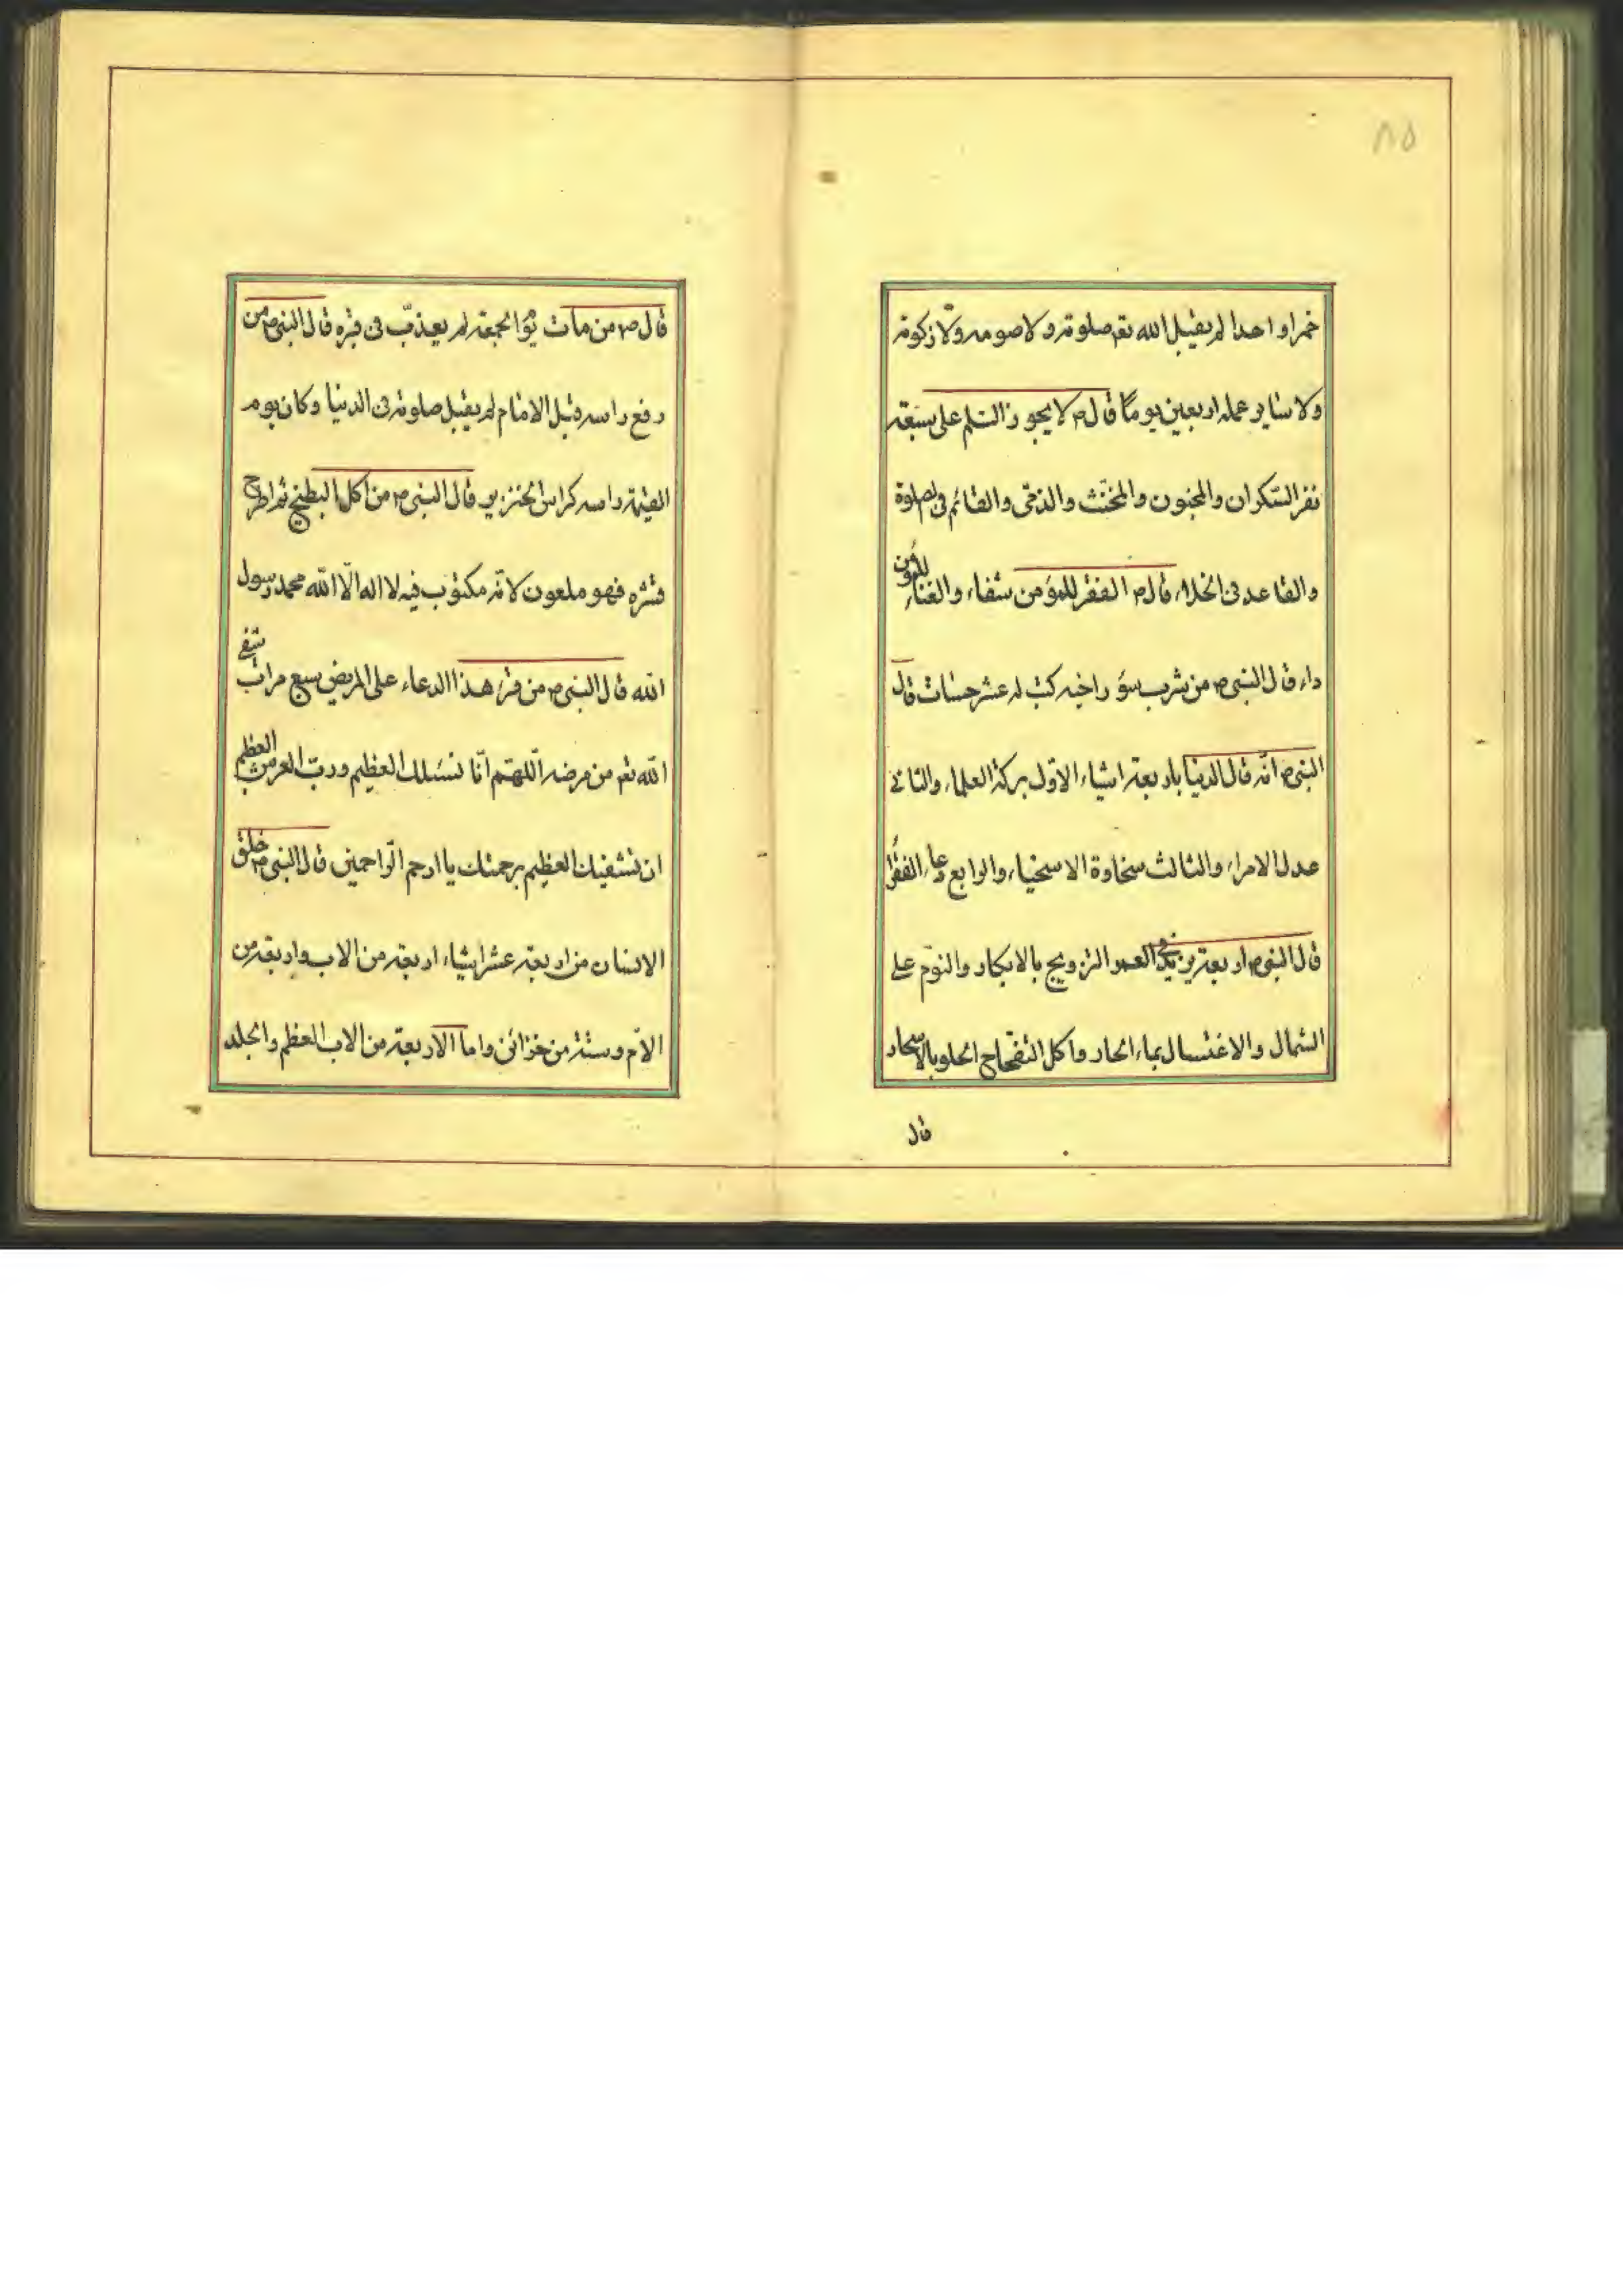 ٨٥
خمرا واحدا لم يقبل الله تعم صلوته ولا صومه ولا زكوته
ولا ساير عمله اربعين يوما قال ص لا يجوز السلم على سبعة
نفر السكران والمجنون والمخنث والذمى والقائم فى الصلوة
والقاعد فى الخلاء قال ص الفقر للمؤمن شفاء والغناء للمؤمن
داء قال النبى ص من شرب سؤر اخيه كتب له عشر حسنات قال
النبى ص انه قال الدنيا باربعة اشياء الاول بركة العلماء والثانى
عدل الامراء والثالث سخاوة الاسخياء والرابع دعاء الفقرا
قال النبى ص اربعة يزيد فى العمر التزويج بالابكار والنوم على
الشمال والاغتسال بماء الحار واكل التفحاح الحلو بالاسحار
قال
قال ص من مات يوم الجمعة لم يعذب فى قبره قال النبى ص من
رفع راسه قبل الامام لم يقبل صلوته فى الدنيا وكان يوم
القيمة راسه كراس الخنزير قال النبى ص من اكل البطيخ ثم اطرح
قشره فهو ملعون لانه مكتوب فيه لا اله الا الله محمد رسول
الله قال النبى ص من قرء هذا الدعاء على المريض سبع مرات شفى
الله تعم من مرضه اللهم انا نسئلك العظيم ورب العرش العظيم
ان تشفيك العظيم برحمتك يا ارحم الراحمين قال النبى ص خلق
الانسان من اربعة عشر اشياء اربعة من الاب واربعة من
الام وستة من خزائن واما الاربعة من الاب العظم والجلد